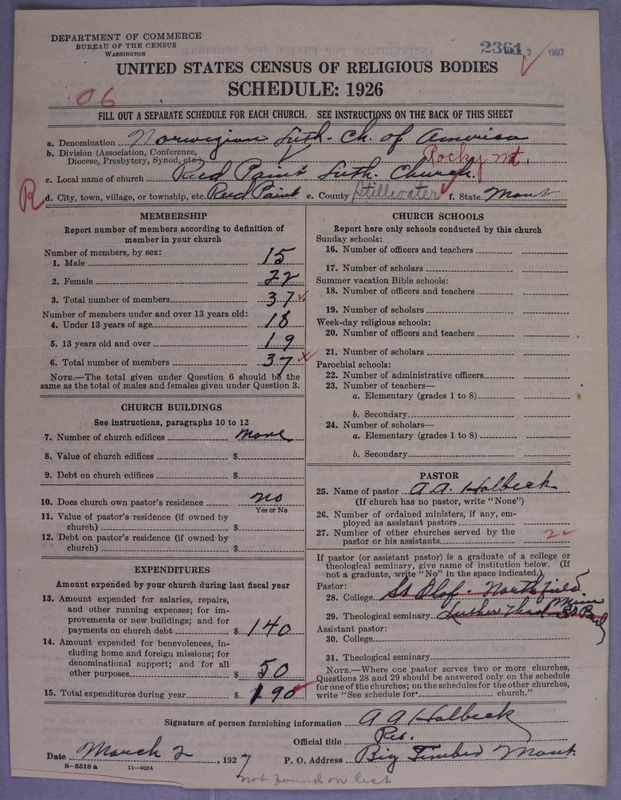 DEPARTMENT OF COMMERCE
BUREAU OF THE CENSUS
WASHINGTON
2361 7 1927
UNITED STATES CENSUS OF RELIGIOUS BODIES
SCHEDULE: 1926
06
FILL OUT A SEPARATE SCHEDULE FOR EACH CHURCH. SEE INSTRUCTIONS ON THE BACK OF THIS SHEET
a. Denomination Norwegian Luth. Ch. of America
b. Division (Association, Conference, Diocese, Presbytery, Synod, etc.) Rocky Mt.
c. Local name of church Reed Point Luth. Church.
R
d. City, town, village, or township, etc. Reed Point e. County Stillwater f. State Mont
MEMBERSHIP
Report number of members according to definition of member in your church
Number of members, by sex:
1. Male 15
2. Female 22
3. Total number of members 37
Number of members under and over 13 years old:
4. Under 13 years of age 18
5. 13 years old and over 19
6. Total number of members 37
NOTE.—The total given under Question 6 should be the same as the total of males and females given under Question 3.
CHURCH BUILDINGS
See instructions, paragraphs 10 to 12
7. Number of church edifices none
8. Value of church edifices $
9. Debt on church edifices $
10. Does church own pastor's residence no
Yes or No
11. Value of pastor's residence (if owned by church) $
12. Debt on pastor's residence (if owned by church) $
EXPENDITURES
Amount expended by your church during last fiscal year
13. Amount expended for salaries, repairs, and other running expenses; for improvements or new buildings; and for payments on church debt $ 140
14. Amount expended for benevolences, including home and foreign missions; for denominational support; and for all other purposes $ 50
15. Total expenditures during year $ 190
CHURCH SCHOOLS
Report here only schools conducted by this church
Sunday schools:
16. Number of officers and teachers
17. Number of scholars
Summer vacation Bible schools:
18. Number of officers and teachers
19. Number of scholars
Week-day religious schools:
20. Number of officers and teachers
21. Number of scholars
Parochial schools:
22. Number of administrative officers
23. Number of teachers—
a. Elementary (grades 1 to 8)
b. Secondary
24. Number of scholars—
a. Elementary (grades 1 to 8)
b. Secondary
PASTOR
25. Name of pastor A.A. Holbeck
(If church has no pastor, write "None")
26. Number of ordained ministers, if any, employed as assistant pastors
27. Number of other churches served by the pastor or his assistants
If pastor (or assistant pastor) is a graduate of a college or theological seminary, give name of institution below. (If not a graduate, write "No" in the space indicated.)
Pastor:
28. College St Olaf. Northfield Minn
29. Theological seminary Luther Theol. St Paul
Assistant pastor:
30. College
31. Theological seminary
NOTE.—Where one pastor serves two or more churches, Questions 28 and 29 should be answered only on the schedule for one of the churches; on the schedules for the other churches, write "See schedule for church."
Signature of person furnishing information A A Holbeck
Official title
Date March 2, 1927 P. O. Address Big Timber Mont.
8-5518 a 11-9034
not found on list